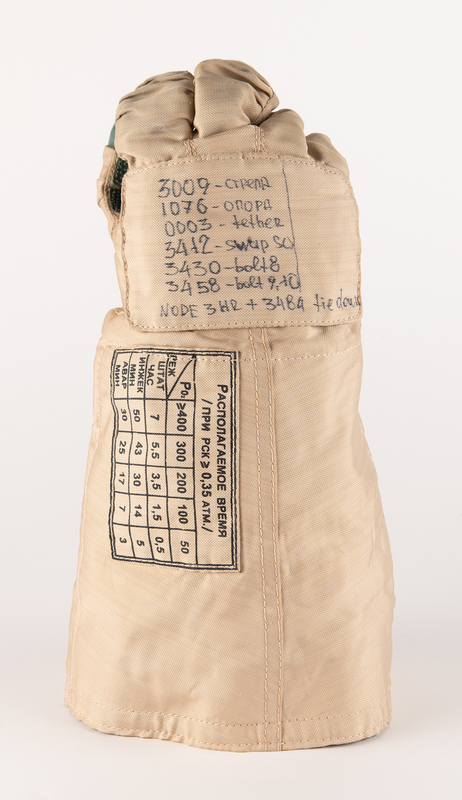 3009-стрела
1076-опора
0003-tether
3412-swap
3430-bolt8
3458-bolt 9,10
NODE 3 HR + 3484 tie down
РАСПОЛАГАЕМОЕ ВРЕМЯ
/ПРИ РСК ≥ 0,35 АТМ./
РЕЖ PO₂ ≥400 300 200 100 50
ШТАТ ЧАС 7 5,5 3,5 1,5 0,5
ИНЖЕК МИН 50 43 30 14 5
АВАР МИН 30 25 17 7 3